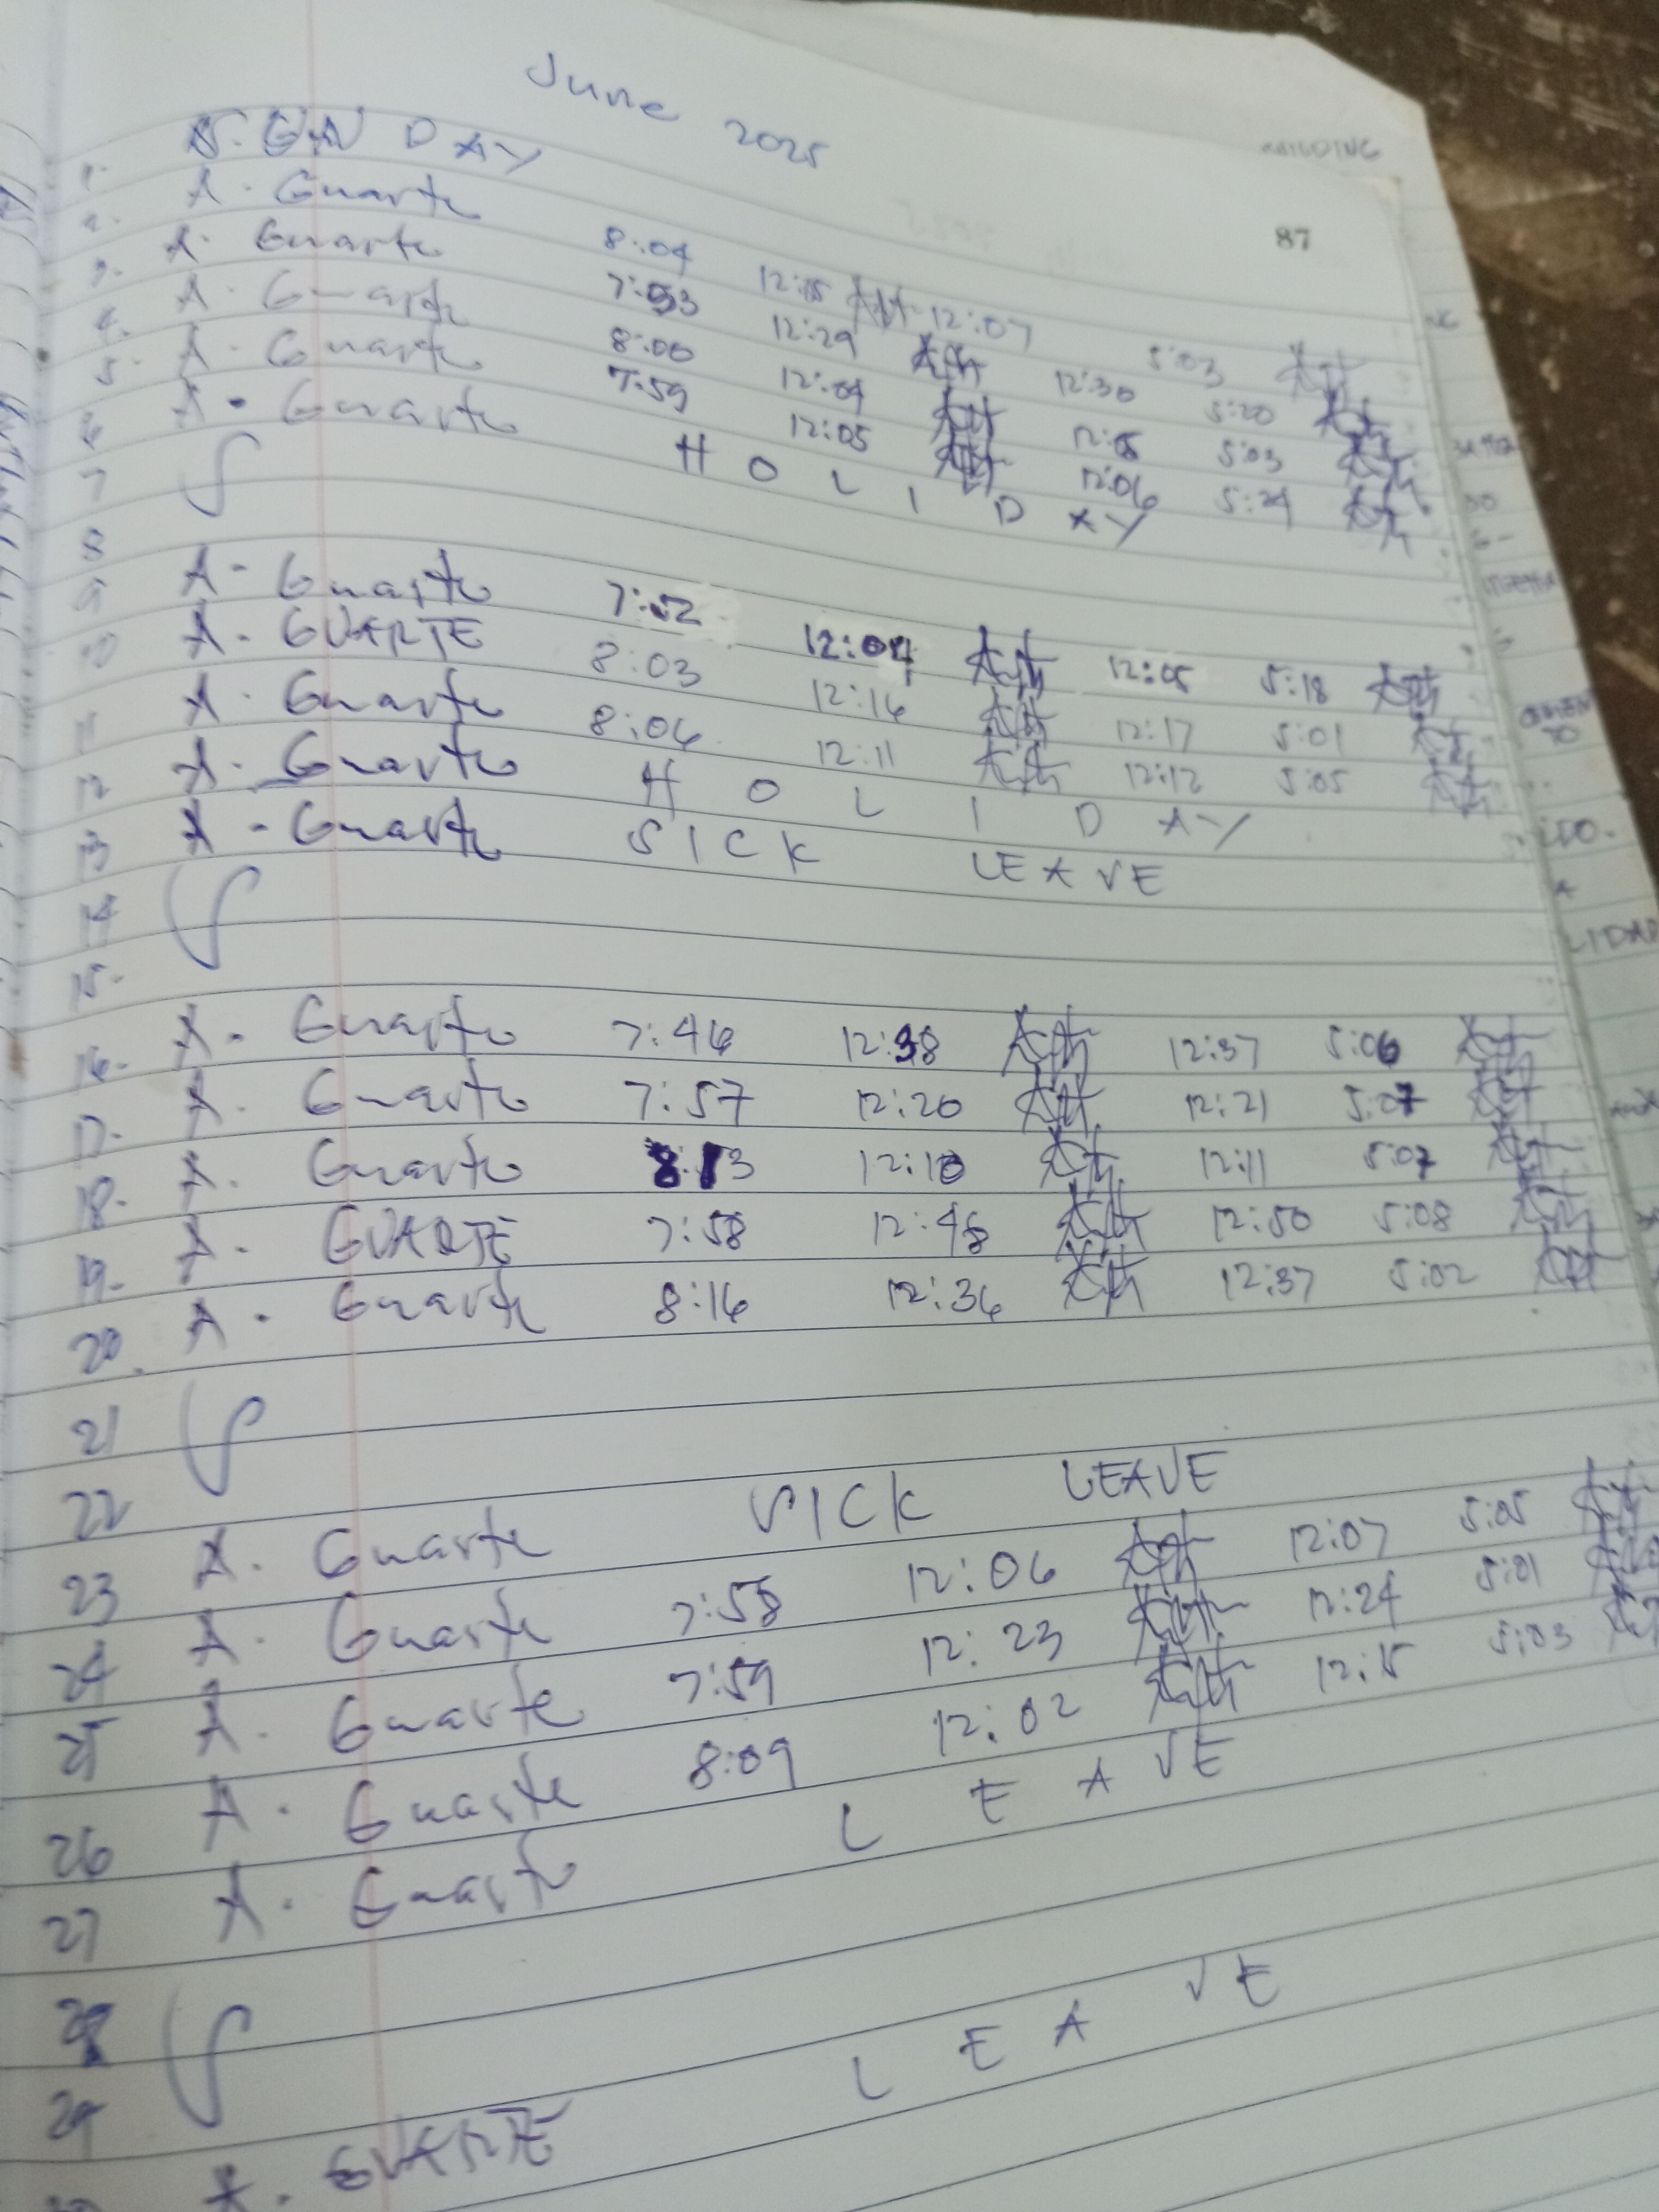 June 2025
87
1. SUNDAY
2. A. Guarte 8:04 12:15 12:07 5:03
3. A. Guarte 7:53 12:29 12:30 5:20
4. A. Guarte 8:00 12:04 12:05 5:03
5. A. Guarte 7:59 12:05 12:06 5:24
6 A. Guarte HOLIDAY
7 S
8
9 A. Guarte 7:52 12:04 12:05 5:18
10 A. GUARTE 8:03 12:16 12:17 5:01
11 A. Guarte 8:06 12:11 12:12 5:05
12 A. Guarte HOLIDAY
13 A. Guarte SICK LEAVE
14 S
15.
16. A. Guarte 7:46 12:38 12:37 5:06
17. A. Guarte 7:57 12:20 12:21 5:07
18. A. Guarte 8:13 12:10 12:11 5:07
19. A. GUARTE 7:58 12:48 12:50 5:08
20. A. Guarte 8:16 12:36 12:37 5:02
21 S
22
23 A. Guarte SICK LEAVE
24 A. Guarte 7:58 12:06 12:07 5:05
25 A. Guarte 7:59 12:23 12:24 5:01
26 A. Guarte 8:09 12:02 12:15 5:03
27 A. Guarte LEAVE
28 S
29
A. GUARTE LEAVE